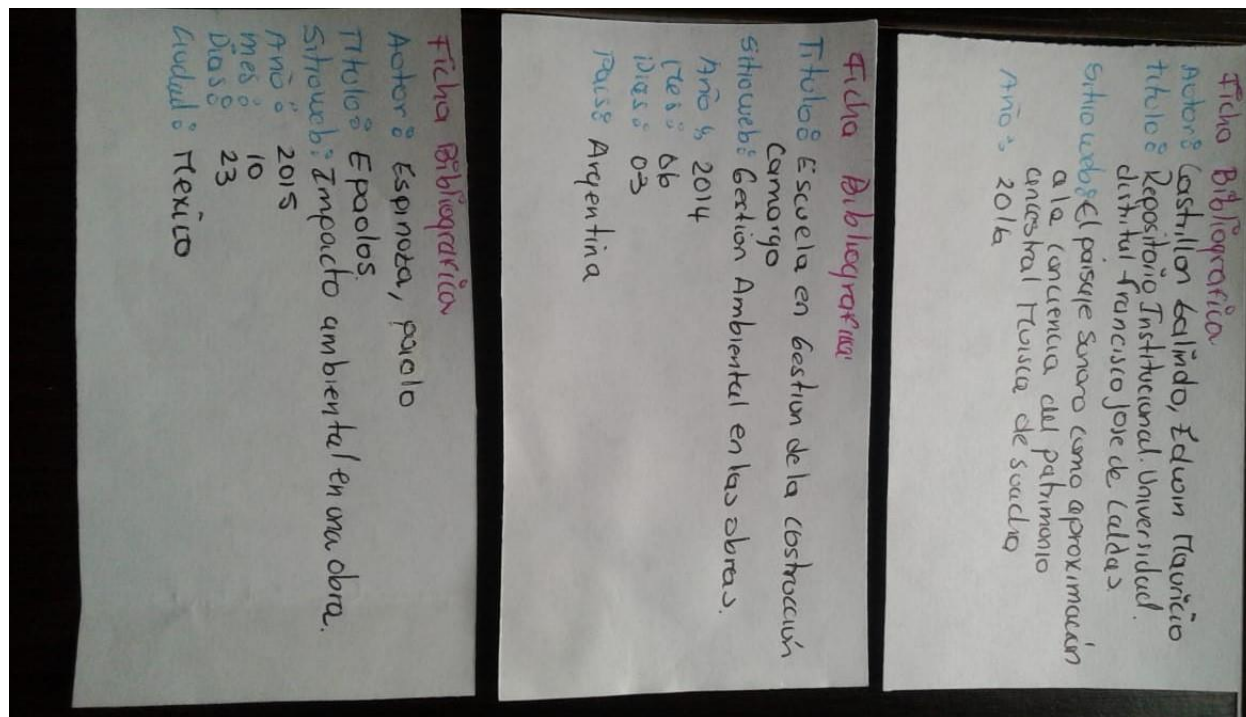 Ficha Bibliografica
Autor: Castrillon Galindo, Edwin Mauricio
titulo: Repositorio Institucional. Universidad
distrital francisco jose de Caldas.
Sitio web: El paisaje sonoro como aproximación
a la conciencia del patrimonio
ancestral Muisca de suacha
Año: 2016
Ficha Bibliografica
Titulo: Escuela en Gestion de la costrucción
Camargo
Sitio web: Gestion Ambiental en las obras.
Año: 2014
Mes: 06
Dias: 03
Pais: Argentina
Ficha Bibliografica
Autor: Espinoza, paolo
Titulo: Epaolos.
Sitio web: Impacto ambiental en una obra.
Año: 2015
mes: 10
Dias: 23
Ciudad: Mexico